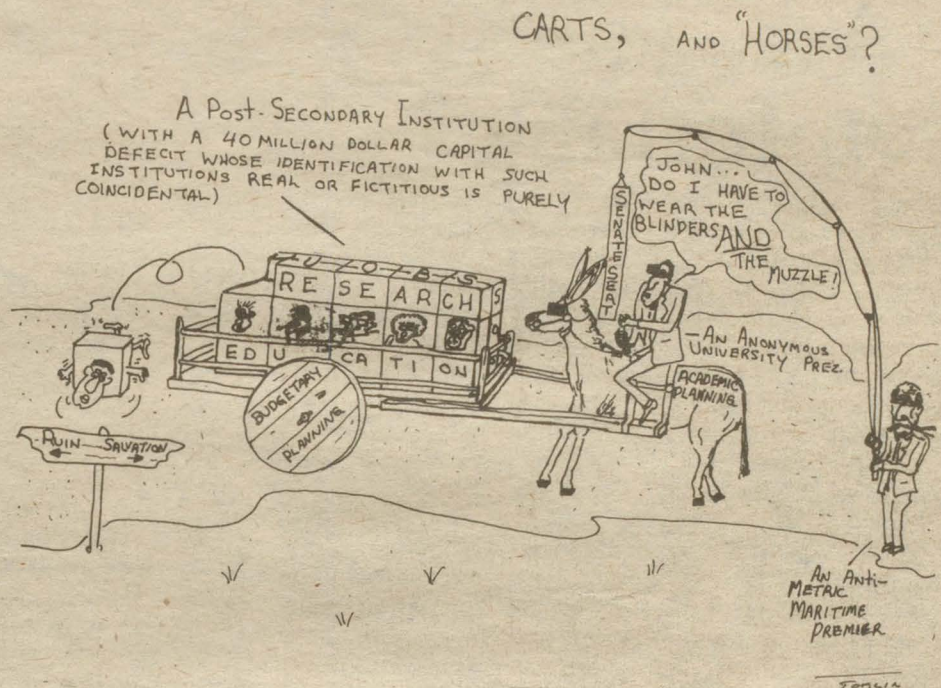 CARTS, AND "HORSES"?
A POST-SECONDARY INSTITUTION
(WITH A 40 MILLION DOLLAR CAPITAL
DEFECT WHOSE IDENTIFICATION WITH SUCH
INSTITUTIONS REAL OR FICTITIOUS IS PURELY
COINCIDENTAL)
JOHN...
DO I HAVE TO
WEAR THE
BLINDERS AND
THE
MUZZLE!
SENATE SEAT
RESEARCH
EDUCATION
BUDGETARY
PLANNING
ACADEMIC
PLANNING
- AN ANONYMOUS
UNIVERSITY PREZ.
RUIN SALVATION
AN ANTI-
METRIC
MARITIME
PREMIER